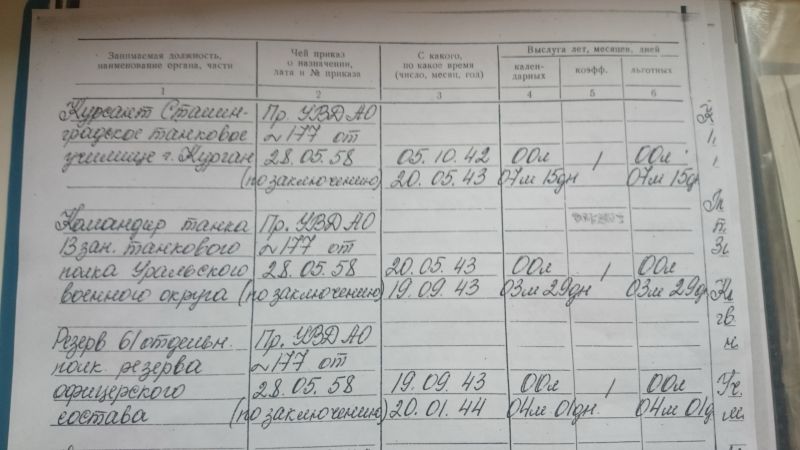 Занимаемая должность, наименование органа, части
Чей приказ о назначении, дата и № приказа
С какого, по какое время (число, месяц, год)
Выслуга лет, месяцев, дней
кален- дарных
коэфф.
льготных
1 2 3 4 5 6
Курсант Сталин- Пр. УВД АО
градское танковое №177 от
училище г. Курган 28.05.58 05.10.42 00л 1 00л
(по заключению) 20.05.43 07м 15дн 07м 15дн
Командир танка Пр. УВД АО
13 зап. танкового №177 от
полка Уральского 28.05.58 20.05.43 00л 1 00л
военного округа (по заключению) 19.09.43 03м 29дн 03м 29д
Резерв 61 отдельн. Пр. УВД АО
полк. резерва №177 от
офицерского 28.05.58 19.09.43 00л 1 00л
состава (по заключению) 20.01.44 04м 01дн. 04м 01д